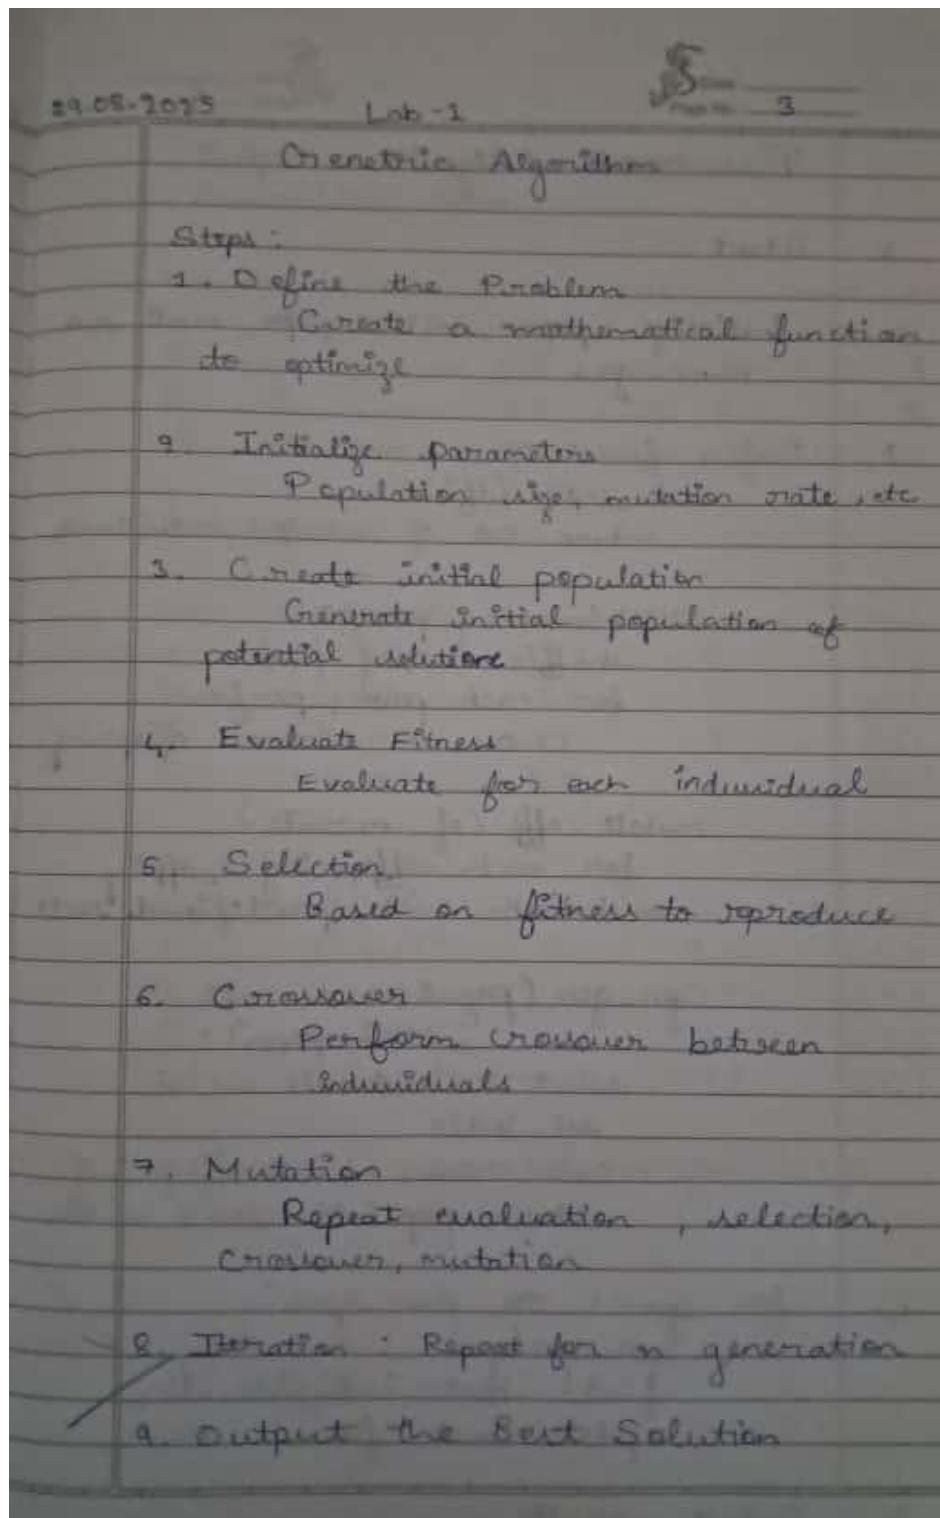 29.08-2025
Lab-1
3
Genetric Algorithm
Steps:
1. Define the Problem
Create a mathematical function
to optimize
2. Initialize parameters
Population size, mutation rate, etc
3. Create initial population
Generate initial population of
potential solutions
4. Evaluate Fitness
Evaluate for each individual
5. Selection
Based on fitness to reproduce
6. Crossover
Perform crossover between
individuals
7. Mutation
Repeat evaluation, selection,
crossover, mutation
8. Iteration : Repeat for n generation
9. Output the Best Solution